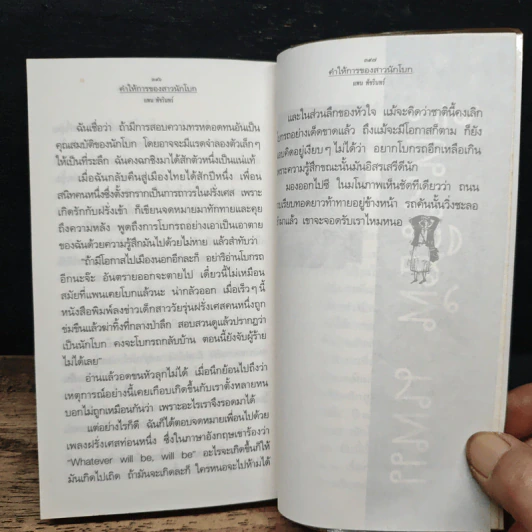 คำให้การของสาวนักโบก
ฉันเชื่อว่า ถ้ามีการสอบความทรหดอดทนอันเป็น
คุณสมบัติของนักโบก โดยอาจจะมีแรดจำลองตัวเล็กๆ
ให้เป็นที่ระลึก ฉันคงฉกชิงมาได้สักตัวหนึ่งเป็นแน่แท้
เมื่อฉันกลับคืนสู่เมืองไทยได้สักปีหนึ่ง เพื่อน
สนิทคนหนึ่งซึ่งตั้งรกรากเป็นการถาวรในฝรั่งเศส เพราะ
เกิดรักกับฝรั่งเข้า ก็เขียนจดหมายมาทักทายและคุย
ถึงความหลัง พูดถึงการโบกรถอย่างเอาเป็นเอาตาย
ของฉันด้วยความรู้สึกมันไปด้วยไม่หาย แล้วสำทับว่า
"ถ้ามีโอกาสไปเมืองนอกอีกละก็ อย่าริอ่านโบกรถ
อีกนะจ๊ะ อันตรายออกจะตายไป เดี๋ยวนี้ไม่เหมือน
สมัยที่แพนเคยโบกแล้วนะ น่ากลัวออก เมื่อเร็วๆ นี้
หนังสือพิมพ์ลงข่าวเด็กสาววัยรุ่นฝรั่งเศสคนหนึ่งถูก
ข่มขืนแล้วฆ่าทิ้งที่กลางป่าลึก สอบสวนดูแล้วปรากฏว่า
เป็นนักโบก คงจะโบกรถกลับบ้าน ตอนนี้ยังจับผู้ร้าย
ไม่ได้เลย"
อ่านแล้วอดขนหัวลุกไม่ได้ เมื่อนึกย้อนไปถึงว่า
เหตุการณ์อย่างนี้เคยเกือบเกิดขึ้นกับเราตั้งหลายหน
บอกไม่ถูกเหมือนกันว่า เพราะอะไรเราจึงรอดมาได้
แต่อย่างไรก็ดี ฉันก็ได้ตอบจดหมายเพื่อนไปด้วย
เพลงฝรั่งเศสท่อนหนึ่ง ซึ่งในภาษาอังกฤษเขาร้องว่า
"Whatever will be, will be" อะไรจะเกิดขึ้นก็ให้
มันเกิดไปเถิด ถ้ามันจะเกิดละก็ ใครหนอจะไปห้ามได้
คำให้การของสาวนักโบก
และในส่วนลึกของหัวใจ แม้จะคิดว่าชาตินี้คงเลิก
โบกรถอย่างเด็ดขาดแล้ว ถึงแม้จะมีโอกาสก็ตาม ก็ยัง
แอบคิดอยู่เงียบๆ ไม่ได้ว่า อยากโบกรถอีกเหลือเกิน
เพราะความรู้สึกขณะนั้นมันอิสรเสรีดีนัก
มองออกไปซิ ในมโนภาพเห็นชัดทีเดียวว่า ถนน
เรียบทอดยาวท้าทายอยู่ข้างหน้า รถคันนั้นวิ่งชะลอ
มาแล้ว เขาจะจอดรับเราไหมหนอ